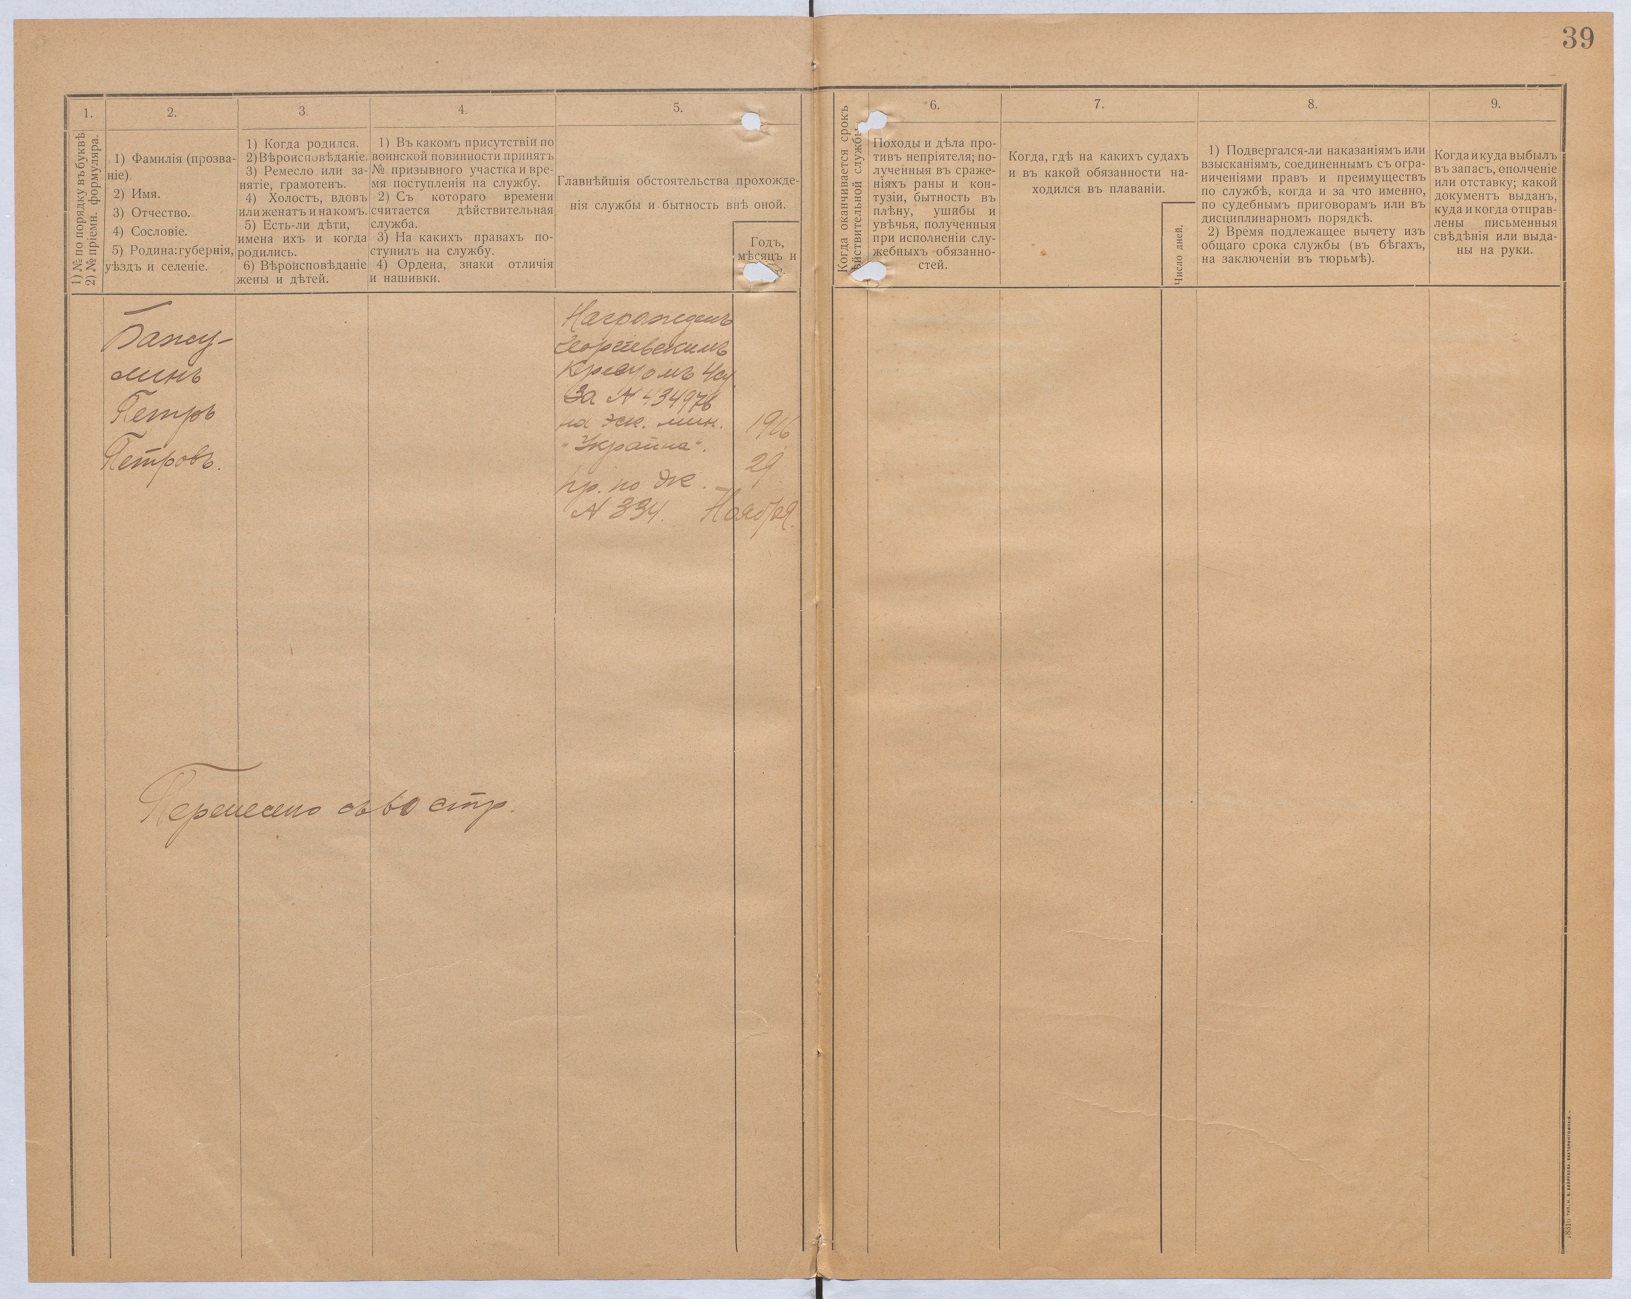 39
1.
1) № по порядку въ буквѣ
2) № пріемн. формуляра.
2.
1) Фамилія (прозва-
ніе).
2) Имя.
3) Отчество.
4) Сословіе.
5) Родина: губернія,
уѣздъ и селеніе.
3
1) Когда родился.
2) Вѣроисповѣданіе.
3) Ремесло или за-
нятіе, грамотенъ.
4) Холостъ, вдовъ
или женатъ и на комъ.
5) Есть-ли дѣти,
имена ихъ и когда
родились.
6) Вѣроисповѣданіе
жены и дѣтей.
4.
1) Въ какомъ присутствіи по
воинской повинности принятъ
№ призывного участка и вре-
мя поступленія на службу.
2) Съ котораго времени
считается дѣйствительная
служба.
3) На какихъ правахъ по-
ступилъ на службу.
4) Ордена, знаки отличія
и нашивки.
5.
Главнѣйшія обстоятельства прохожде-
нія службы и бытность внѣ оной.
Годъ,
мѣсяцъ и
Когда оканчивается срокъ
дѣйствительной службы.
6.
Походы и дѣла про-
тивъ непріятеля; по-
лученныя въ сраже-
ніяхъ раны и кон-
тузіи, бытность въ
плѣну, ушибы и
увѣчья, полученныя
при исполненіи слу-
жебныхъ обязанно-
стей.
7.
Когда, гдѣ на какихъ судахъ
и въ какой обязанности на-
ходился въ плаваніи.
Число дней.
8.
1) Подвергался-ли наказаніямъ или
взысканіямъ, соединеннымъ съ огра-
ниченіями правъ и преимуществъ
по службѣ, когда и за что именно,
по судебнымъ приговорамъ или въ
дисциплинарномъ порядкѣ.
2) Время подлежащее вычету изъ
общаго срока службы (въ бѣгахъ,
на заключеніи въ тюрьмѣ).
9.
Когда и куда выбылъ
въ запасъ, ополченіе
или отставку; какой
документъ выданъ,
куда и когда отправ-
лены письменныя
свѣдѣнія или выда-
ны на руки.
Бажу-
линъ
Петръ
Петровъ.
Награжденъ
Георгіевскимъ
Крестомъ 4 ст
За № 434976
на эск. мин.
"Украйна".
пр. по
№ 334.
1916
29
Ноября.
Перенесено съ стр.